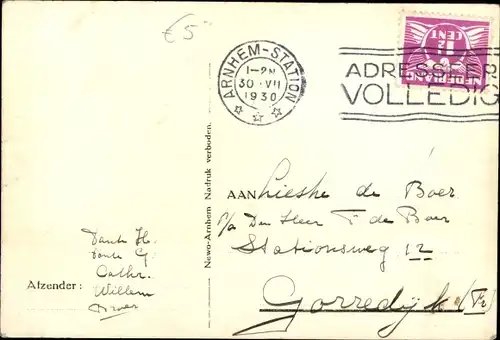 € 5
ARNHEM-STATION
1-2N
30·VII
1930
NEDERLAND
1½
CENT
ADRESSEER
VOLLEDIG
Newo-Arnhem Nadruk verboden.
AAN Lieske de Boer
p/a Den Heer T de Boer
Stationsweg 12
Gorredijk (Fr)
Afzender :
Tante H.
Tante G.
Cathr.
Willem